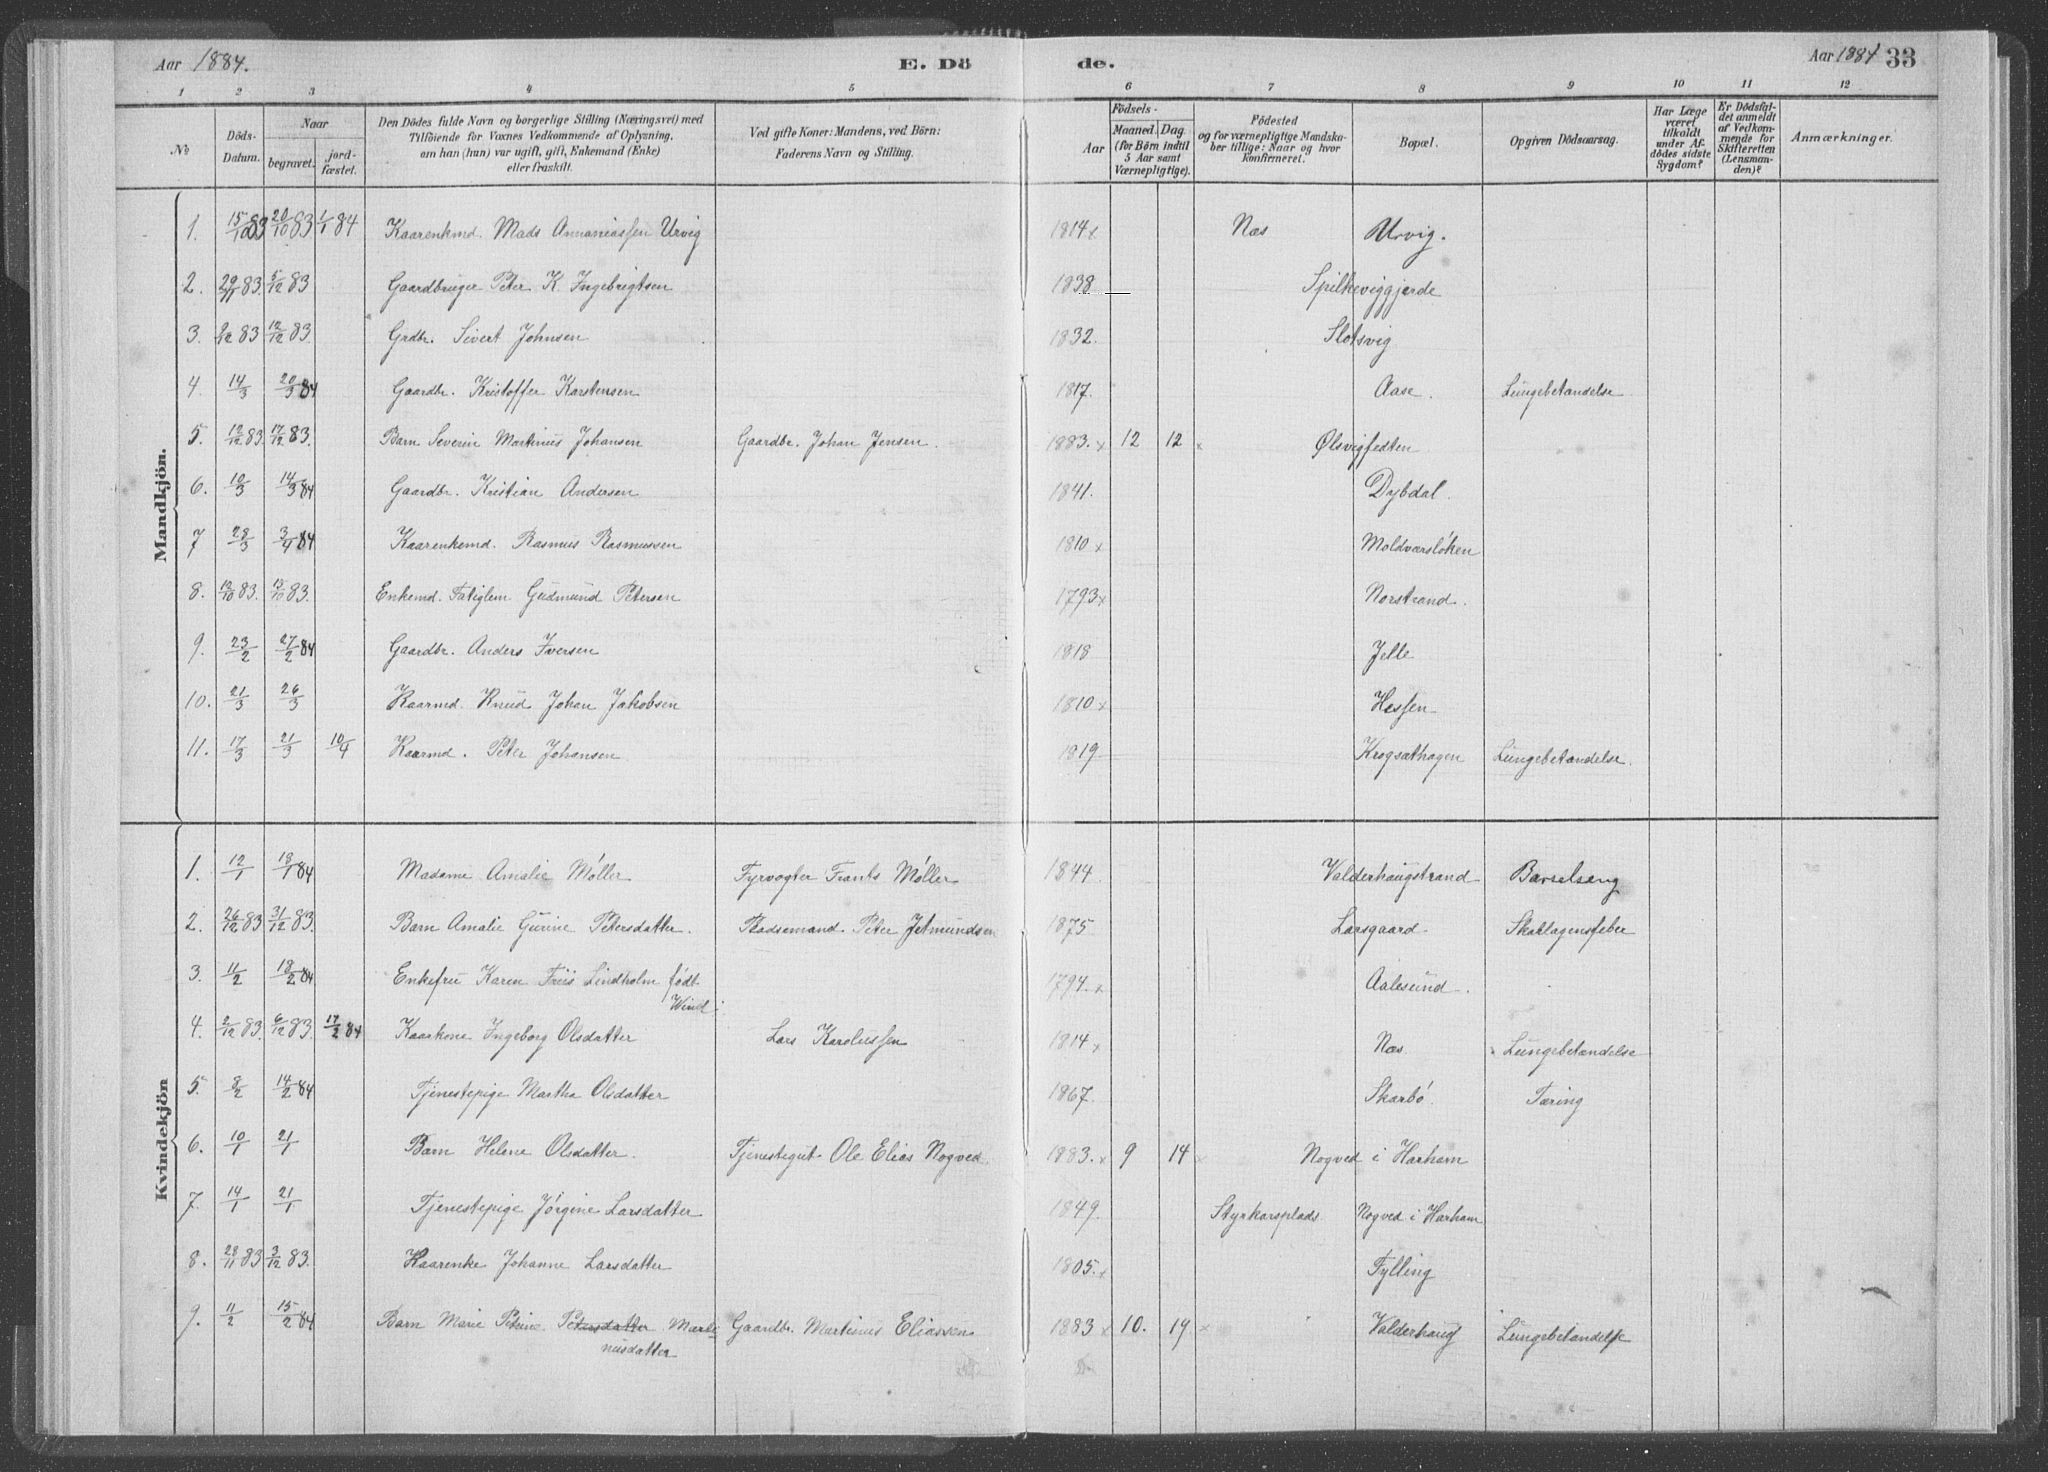 Aar 1884. E. Dö de. Aar 1884 33
1 2 3 4 5 6 7 8 9 10 11 12
No Döds-Datum. Naar begravet. jord-fæstet. Den Dödes fulde Navn og borgerlige Stilling (Næringsvei) med Tilföiende for Voxnes Vedkommende af Oplysning, om han (hun) var ugift, gift, Enkemand (Enke) eller fraskilt. Ved gifte Koner: Mandens, ved Börn: Faderens Navn og Stilling. Födsels- Aar Maaned. Dag. (for Börn indtil 5 Aar samt Værnepligtige). Födested og for værnepligtige Mandskaber tillige: Naar og hvor Konfirmeret. Bopæl. Opgiven Dödsaarsag. Har Læge været tilkaldt under Afdödes sidste Sygdom? Er Dödsfaldet anmeldt af Vedkommende for Skifteretten (Lensmanden)? Anmærkninger.
Mandkjön.
1. 15/10 83 20/10 83 1/1 84 Kaarenkmd. Mads Annaniassen Urvig 1814 x Næs Urvig.
2. 29/11 83. 5/12 83 Gaardbruger Peter K. Ingebrigtsen 1838 Spilkeviggjerde
3. 9/12 83 12/12 83. Grdbr. Sivert Johnsen 1832. Slotsvig
4. 14/3 20/3 84 Gaardbr. Kristoffer Karstensen 1817. Aase. Lungebetændelse
5. 12/12 83. 17/12 83. Barn Severin Martinus Johansen Gaardbr. Johan Jensen. 1883. x 12 12 x Ølsvigfedten
6. 10/3 14/3 84 Gaardbr. Kristian Andersen 1841. Dybdal.
7 28/3 3/4 84 Kaarenkemd. Rasmus Rasmussen 1810 x Moldværsløken
8. 12/10 83. 15/10 83. Enkemd. Fatiglem Gudmund Petersen 1793 x Norstrand.
9. 23/2 27/2 84 Gaardbr. Anders Iversen 1818 Jelle
10. 21/3 26/3 Kaarmd. Knud Johan Jakobsen 1810 x Hessen
11. 17/3 21/3 10/4 Kaarmd. Peter Johansen 1819 Krogsæthagen Lungebetændelse.
Kvindekjön
1. 12/1 18/1 84 Madame Amalie Møller Fyrvogter Frants Møller 1844. Valderhaugstrand Barselseng
2. 26/12 83 31/12 83. Barn Amalie Gurine Petersdatter. Pladsemand Peter Jetmundsen 1875 Larsgaard. Skarlagensfeber
3. 11/2 18/2 84 Enkefru Karen Friis Lindholm født 1794. x Aalesund.
Wind
4. 2/12 83. 6/12 83. 17/2 84 Kaarkone Ingeborg Olsdatter Lars Karolussen 1814 x Næs Lungebetændelse
5. 8/2 14/2 84 Tjenestepige Martha Olsdatter 1867. Skarbø. Tæring
6. 10/1 21/1 Barn Helene Olsdatter. Tjenestegut Ole Elias Nogved. 1883. x 9 14 x Nogved i Harham
7. 14/1 21/1 Tjenestepige Jørgine Larsdatter 1849. Styrkarsplads. Nogved i Harham
8. 28/11 83 3/12 83. Kaarenke Johanne Larsdatter 1805. x Fylling
9. 11/2 15/2 84 Barn Marie Petrine Petersdatter Marti Gaardbr. Martinus Eliassen 1883 x 10. 19 x Valderhaug Lungebetændelse
nusdatter